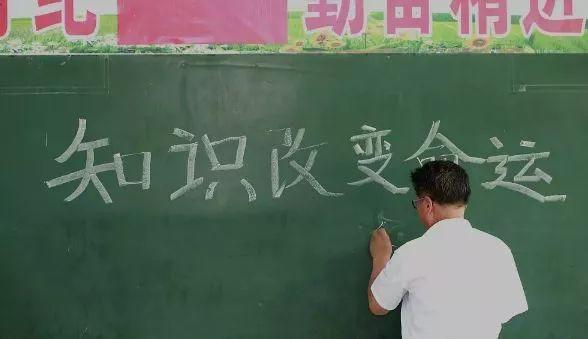 纪 勤奋精
知识改变命运